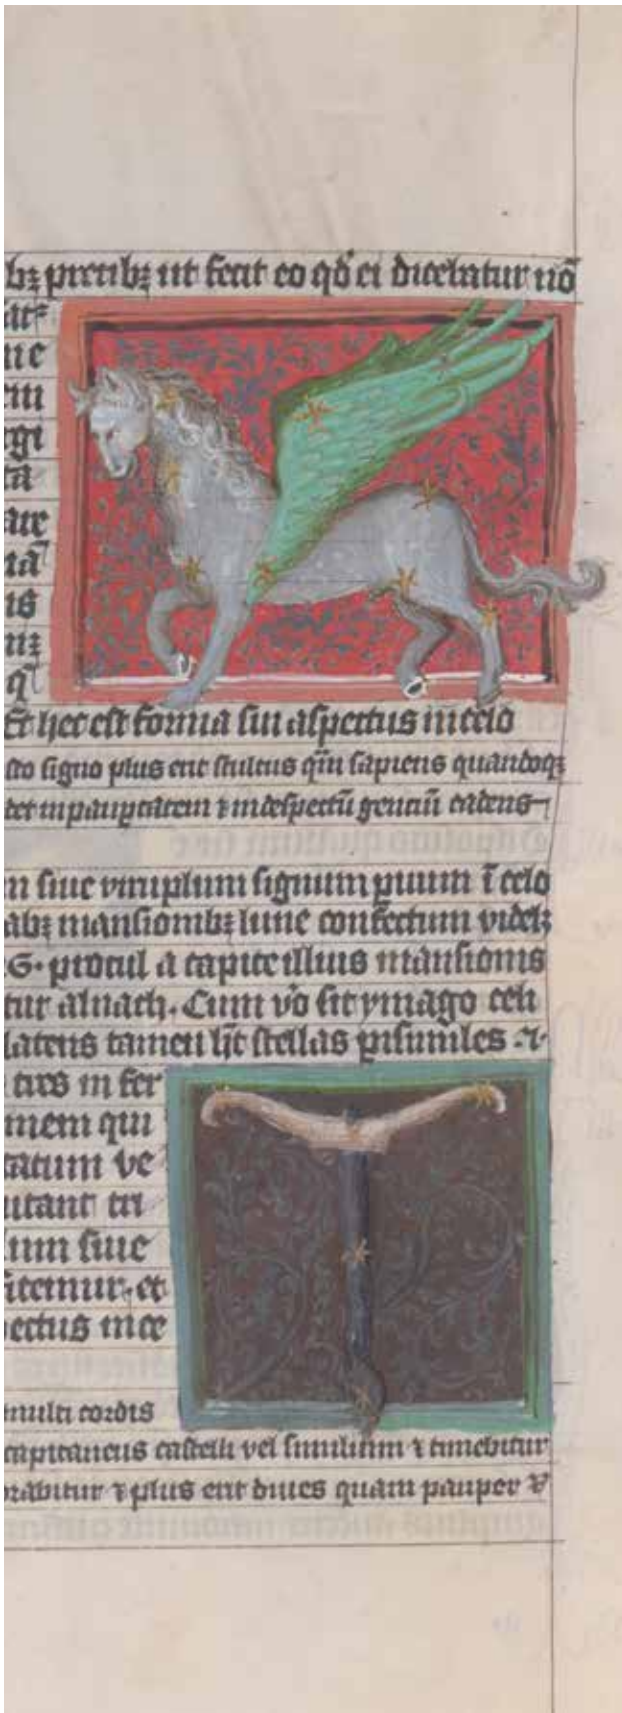 bꝫ p̄cn̄bꝫ ut fecit eo qď ei dicebatur nō
ne
em
rgi
ta
is
Et hec est forma sui aspectus in celo
sto signo plus erit stultus q̄m sapiens quandoqꝫ
det in paup̄tatem ⁊ in despectū gentiū cadens
n siue vmplum signum puum ī celo
abꝫ mansiombꝫ lune confectum videlꝫ
G· procul a capite illius mansionis
tur alnach. Cum vo sit ymago celi
latens tamen h̄t stellas p̄similes ·2·
tres in fer
mem qui
tatum ve
utant tri
lum siue
sitemur et
ectus in ce
multi cordis
capitaneus castelli vel similium ⁊ timebitur
orabitur ⁊ plus erit diues quam pauper